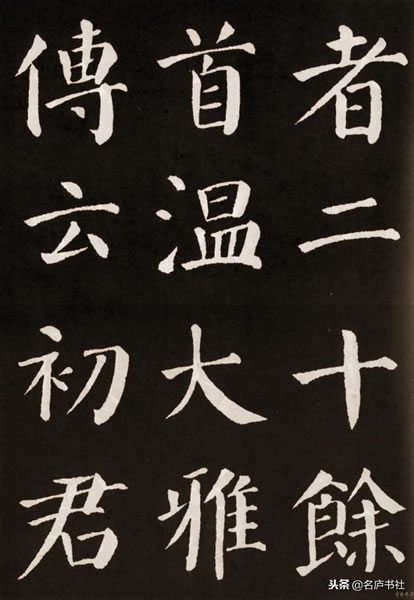 者二十餘
首温大雅
傳云初君
头条 @名庐书社